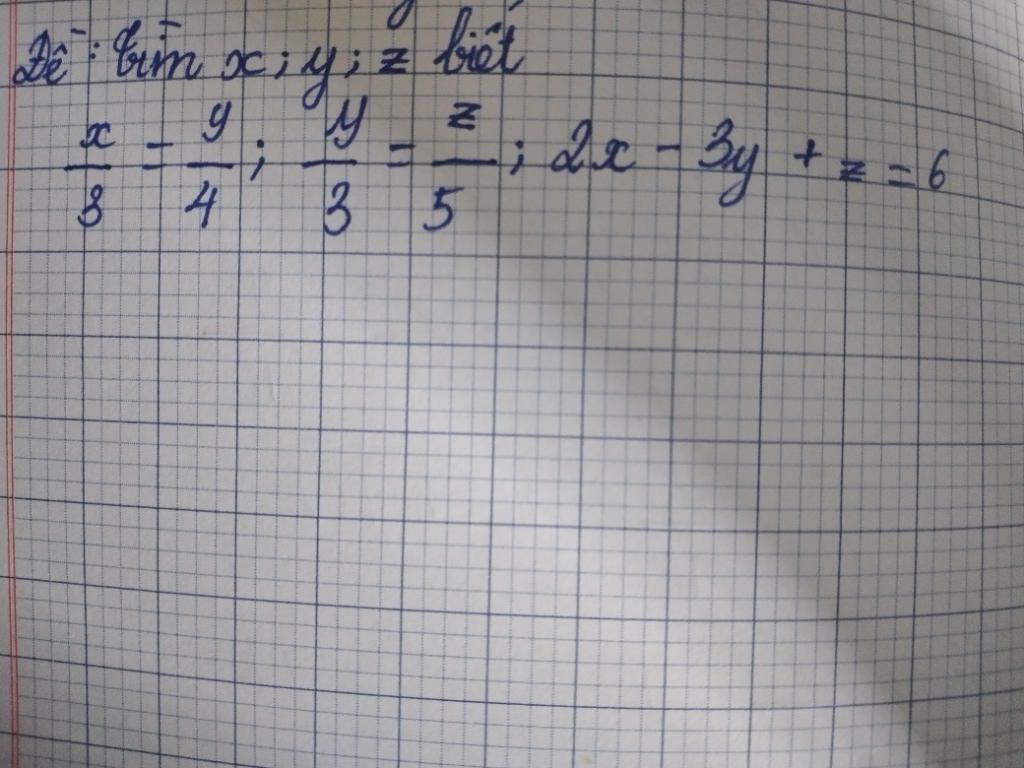 Đề: tìm x; y; z biết
x/3 = y/4; y/3 = z/5; 2x - 3y + z = 6